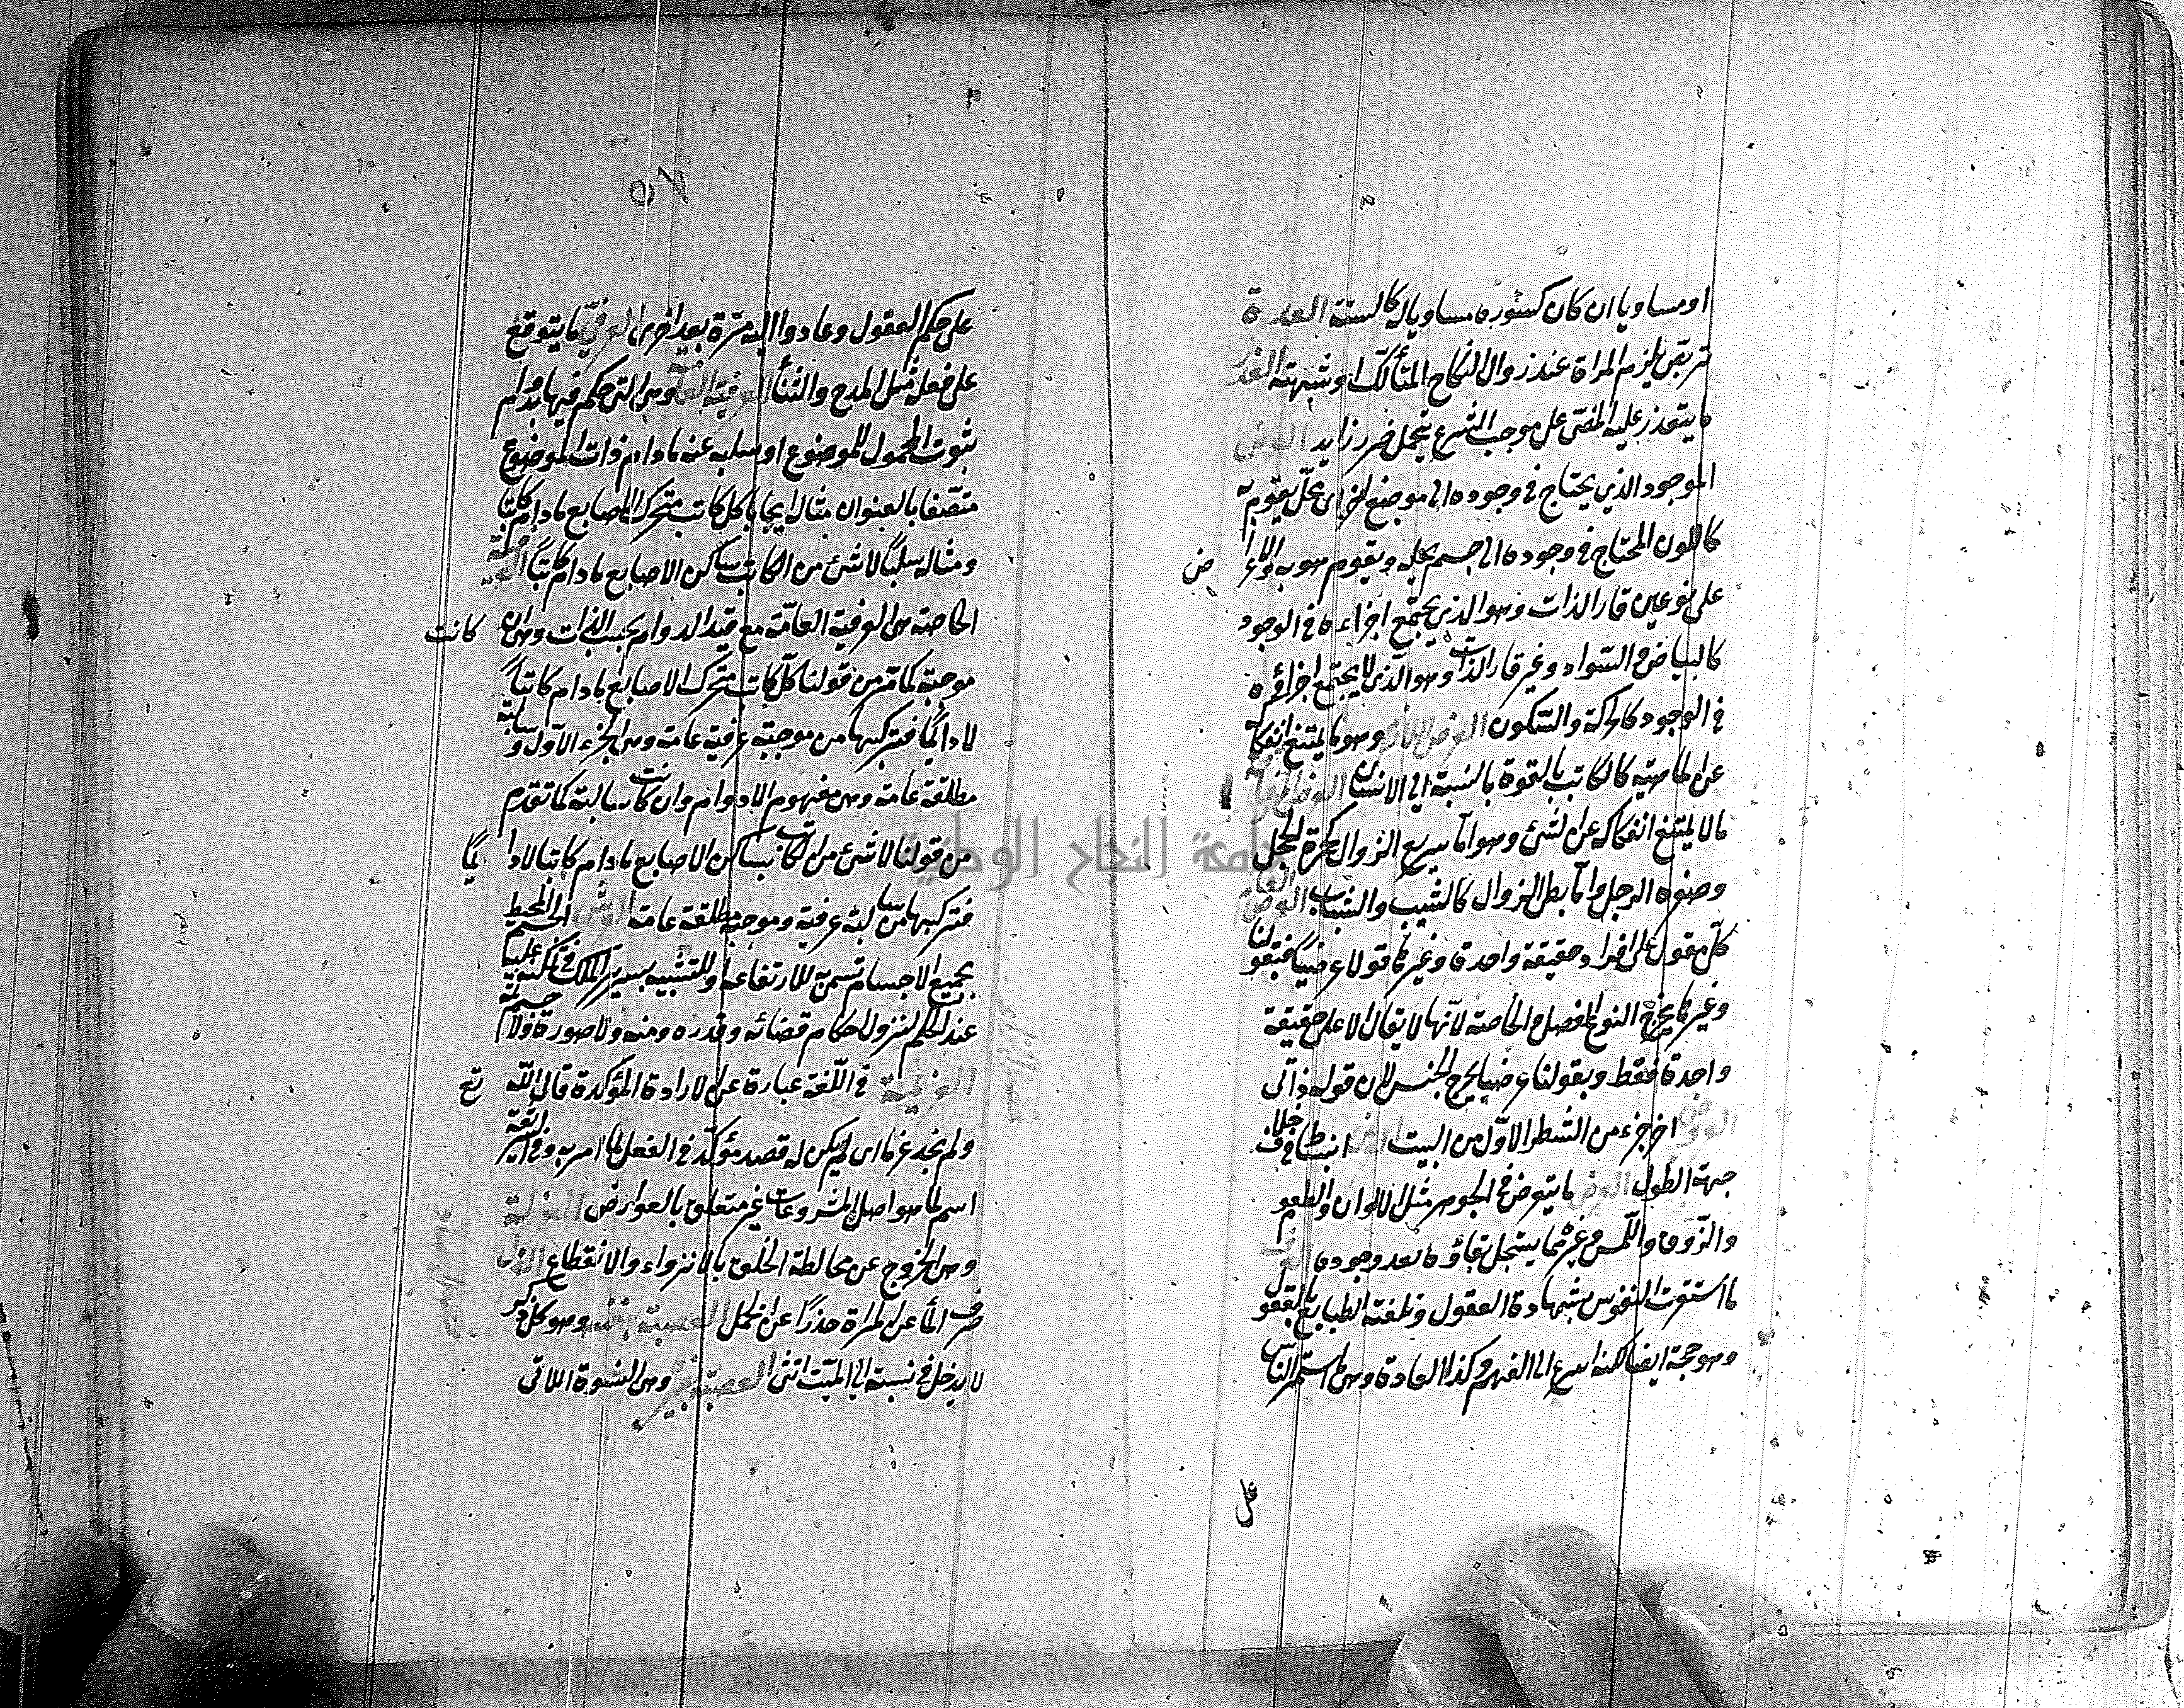 او مساويا ان كان كسوره مساويا له كالستة العدة
تربص يلزم المراة عند زوال النكاح المتأكد او شبهته العذر
ما يتعذر عليه المضى على موجب الشرع الا بتحمل ضرر زايد العرض
الموجود الذي يحتاج في وجوده الى موضع اى محل يقوم به
كاللون المحتاج في وجوده الى جسم يحله ويقوم هو به والاعراض
على نوعين قار الذات وهو الذي يجتمع اجزاءه في الوجود
كالبياض والسواد وغير قار الذات وهو الذي لا يجتمع اجزائه
في الوجود كالحركة والسكون العرض اللازم وهو ما يمتنع انفكاكه
عن الماهية كالكاتب بالقوة بالنسبة الى الانسان العرض المفارق
ما لا يمتنع انفكاكه عن الشئ وهو اما سريع الزوال كحمرة الخجل
وصفرة الوجل واما بطئ الزوال كالشيب والشباب العرض العام
كل مقول على افراد حقيقة واحدة وغيرها قولا عرضيا فبقولنا
وغيرها يخرج النوع والفصل والخاصة لانها لا يقال الا على حقيقة
واحدة فقط وبقولنا عرضيا يخرج الجنس لان قوله ذاتى
العروض اخر جزء من الشطر الاول من البيت العرض انبساط في خلاف
جهة الطول العرض ما يتعرض في الجوهر مثل الالوان والطعوم
والذوق واللمس وغيرهما يستحيل بقاؤه بعد وجوده العرف
ما استقرت النفوس بشهادة العقول وتلقته الطبايع بالقبول
وهو حجة ايضا لكنه اسرع الى الفهم وكذا العادة وهى ما استمر الناس
على
٥٧
على حكم العقول وعادوا اليه مرة بعد اخرى العرفى ما يتوقف
على فعل مثل المدح والثنأ العرفية العامة وهى التى حكم فيها بدوام
ثبوت المحمول للموضوع او سلبه عنه ما دام ذات الموضوع
متصفا بالعنوان مثاله ايجابا كل كاتب متحرك الاصابع ما دام كاتبا
ومثاله سلبا لا شئ من الكاتب بساكن الاصابع ما دام كاتبا العرفية
الخاصة هى العرفية العامة مع قيد اللادوام بحسب الذات وهى ان كانت
موجبة كما مر من قولنا كل كاتب متحرك الاصابع ما دام كاتبا
لا دائما فتركيبها من موجبة عرفية عامة وهى الجزء الاول وسالبة
مطلقة عامة وهى مفهوم اللادوام وان كانت سالبة كما تقدم
من قولنا لا شئ من الكاتب بساكن الاصابع ما دام كاتبا لا دايما
فتركيبها من سالبة عرفية وموجبة مطلقة عامة العرش الجسم المحيط
بجميع الاجسام سمى به للارتفاعه او للتشبيه بسرير الملك في تمكنه عليه
عند الحكم لنزول احكام قضائه وقدره ومنه ولا صورة ولا جسم ثمة
العزيمة في اللغة عبارة عن الارادة المؤكدة قال الله تع
ولم نجد له عزما اى لم يكن له قصد مؤكد في الفعل بما امر به وفي الشريعة
اسم لما هو اصل المشروعات غير متعلق بالعوارض العزلة
وهى الخروج عن مخالطة الخلق بالانزواء والانقطاع العزل
صرف الما عن المراة حذرا عن الحمل العصبة بنفسه وهو كل ذكر
لا يدخل في نسبته الى الميت انثى العصبة بغيره وهى النسوة اللاتى